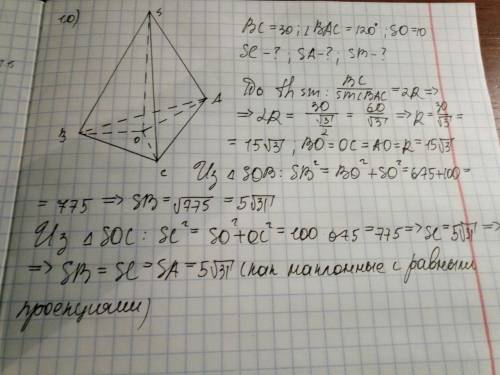 10)
S
A
B
O
C
BC=30; ∠BAC=120°; SO=10
SC-?; SA-?; SB-?
По th sin: BC/sin∠BAC = 2R ⇒
⇒ 2R = 30/(√3/2) = 60/√3 ⇒ R = 30/√3 =
= 15√3; BO=OC=AO=R=15√3
Из △SOB: SB²=BO²+SO²=675+100=
= 775 ⇒ SB=√775 = 5√31
Из △SOC: SC²=SO²+OC²=100 675=775⇒SC=5√31 ⇒
⇒ SB=SC=SA=5√31 (как наклонные с равными
проекциями)